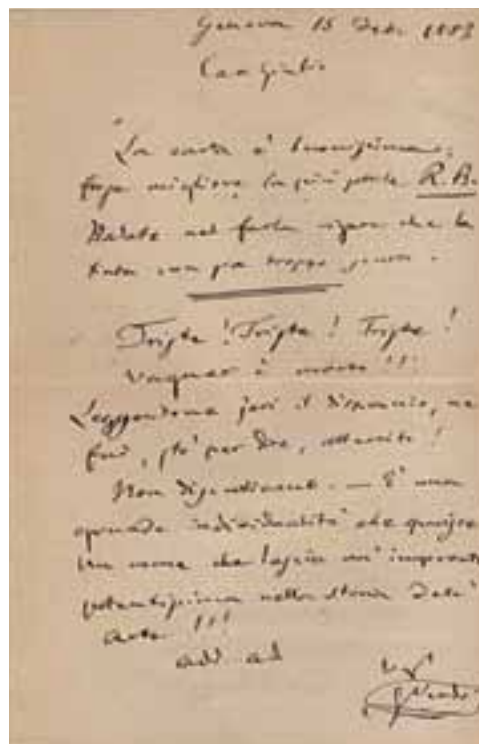 Genova 15 Feb. 1883
Car Giulio
La carta è buonissima;
forse migliore la più R. B.
Badate nel farla rigare che la
tinta non sia troppo
Triste! Triste! Triste!
Vagner è morto!!!
Leggendone jeri il dispaccio, ne
fui, sto per dire, atterrito!
Non discutiamo. — È una
grande individualità che sparisce
Un nome che lascia un'impronta
potentissima nella storia dell'
Arte!!!
ad. ad
G Verdi